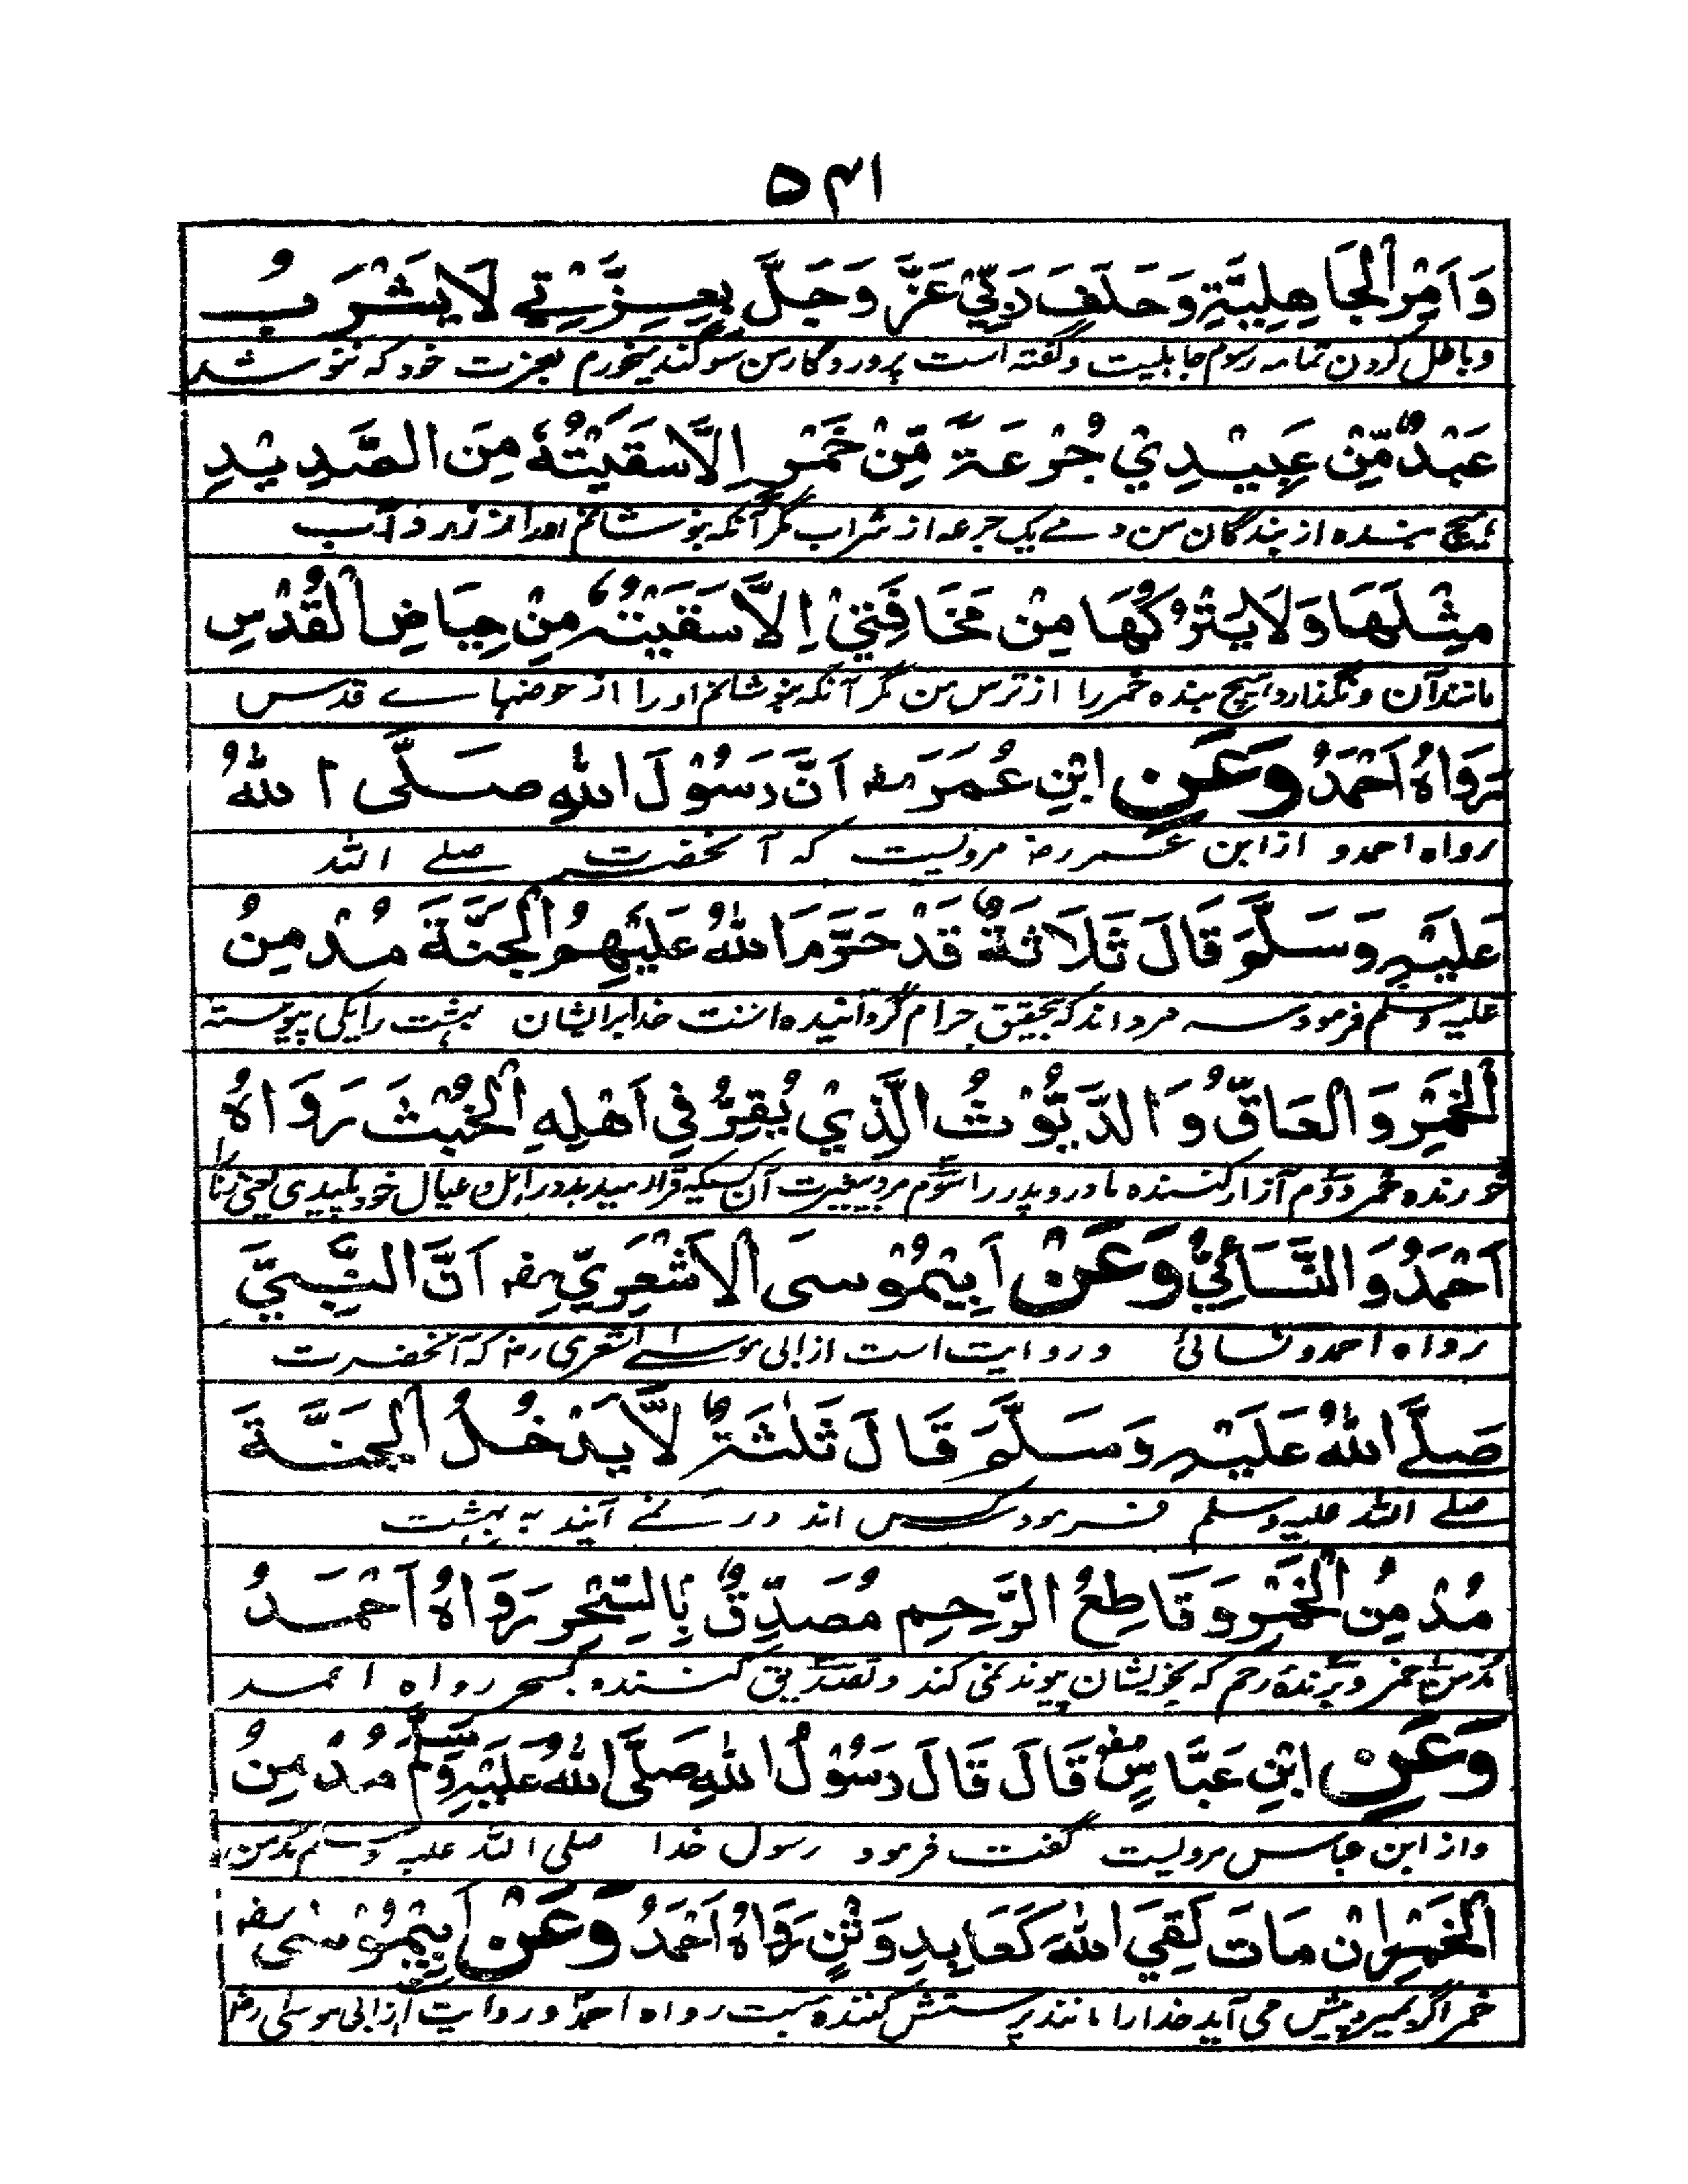 ۵۴۱
وَاَمْرِ الْجَاهِلِيَّةِ وَحَلَفَ رَبِّيْ عَزَّ وَجَلَّ بِعِزَّتِيْ لَا يَشْرَبُ
وباطل کردن تمامه رسوم جاہلیت وگفته است پروردگار من سوگند میخورم بعزت خود که ننوشد
عَبْدٌ مِّنْ عَبِيْدِيْ جُرْعَةً مِّنْ خَمْرٍ اِلَّا سَقَيْتُهٗ مِنَ الصَّدِيْدِ
ہیچ بنده از بندگان من دمے یک جرعه از شراب مگر آنکه بنوشانم اورا از زرد آب
مِثْلَهَا وَلَا يَتْرُكُهَا مِنْ مَخَافَتِيْ اِلَّا سَقَيْتُهٗ مِنْ حِيَاضِ الْقُدْسِ
مانند آن ونگذارد ہیچ بنده خمر را از ترس من مگر آنکه بنوشانم اورا از حوضہاے قدس
رَوَاهُ اَحْمَدُ وَعَنِ ابْنِ عُمَرَ رضہ اَنَّ رَسُوْلَ اللّٰهِ صَلَّى اللّٰهُ
رواه احمد و از ابن عمر رضہ مرویست که آنحضرت صلے الله
عَلَيْهِ وَسَلَّمَ قَالَ ثَلَاثَةٌ قَدْ حَرَّمَ اللّٰهُ عَلَيْهِمُ الْجَنَّةَ مُدْمِنُ
علیه وسلم فرمود سه مرد اند که بتحقیق حرام گردانیده است خدا برایشان بہشت را یکی پیوسته
الْخَمْرِ وَالْعَاقُّ وَالدَّيُّوْثُ الَّذِيْ يُقِرُّ فِيْ اَهْلِهِ الْخُبْثَ رَوَاهُ
خورنده خمر دوم آزار کننده مادر و پدر را سوم مرد بیغیرت آن کسیکه قرار میدہد در اہل و عیال خود پلیدی یعنی زنا
اَحْمَدُ وَالنَّسَائِيُّ وَعَنْ اَبِيْ مُوْسَى الْاَشْعَرِيِّ رضہ اَنَّ النَّبِيَّ
رواه احمد ونسائی وروایت است از ابی موسے اشعری رضہ که آنحضرت
صَلَّے اللّٰهُ عَلَيْهِ وَسَلَّمَ قَالَ ثَلٰثَةٌ لَّا يَدْخُلُ الْجَنَّةَ
صلے الله علیه وسلم فرمود سه کس اند در نمے آیند به بہشت
مُدْمِنُ الْخَمْرِ وَقَاطِعُ الرَّحِمِ وَمُصَدِّقٌ بِالسِّحْرِ رَوَاهُ اَحْمَدُ
مدمن خمر و برندهٔ رحم که بخویشان پیوند نمی کند و تصدیق کننده بسحر رواه احمد
وَعَنِ ابْنِ عَبَّاسٍ رضہ قَالَ قَالَ رَسُوْلُ اللّٰهِ صَلَّى اللّٰهُ عَلَيْهِ وَسَلَّمَ مُدْمِنُ
واز ابن عباس مرویست گفت فرمود رسول خدا صلی الله علیه وسلم مدمن
الْخَمْرِ اِنْ مَاتَ لَقِيَ اللّٰهَ كَعَابِدِ وَثَنٍ رَوَاهُ اَحْمَدُ وَعَنْ اَبِيْ مُوْسٰى رضہ
خمر اگر بمیرد پیش می آید خدا را مانند پرستش کننده بت رواه احمد و روایت از ابی موسی رضہ